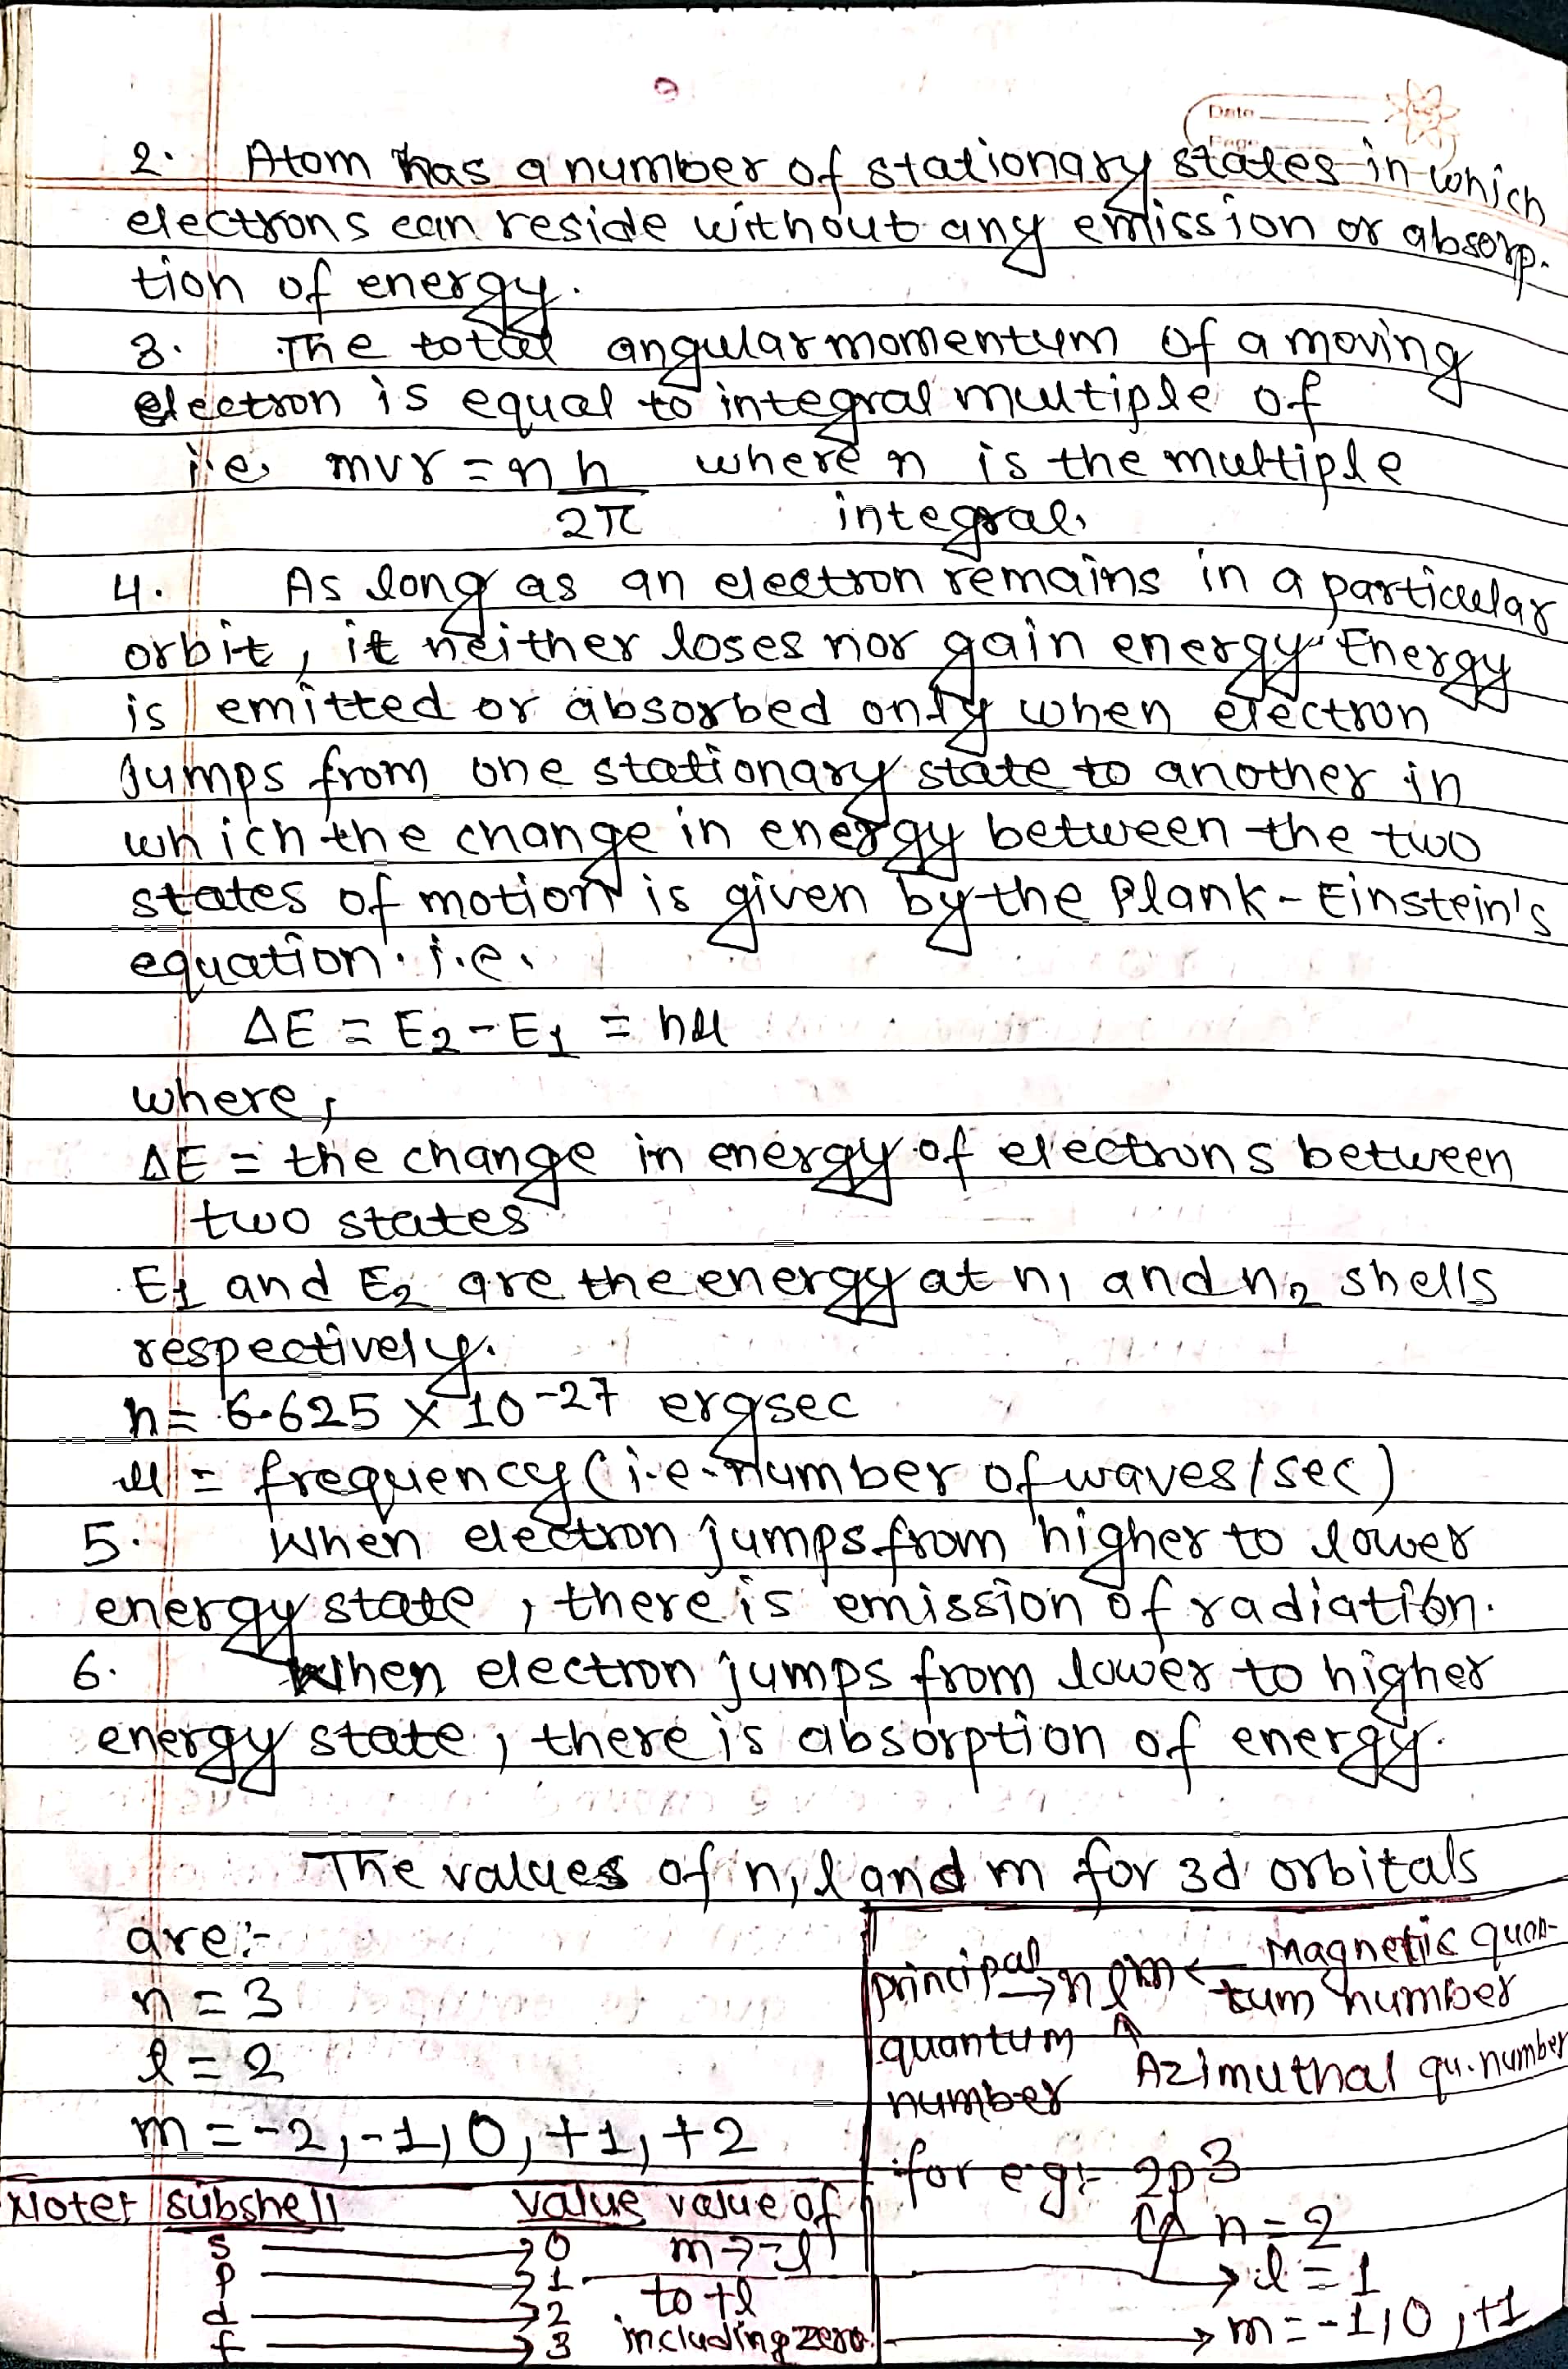 Date
Page
2. Atom has a number of stationary states in which
electrons can reside without any emission or absorp-
tion of energy.
3. The total angular momentum of a moving
electron is equal to integral multiple of
i.e. mvr = n h where n is the multiple
2π integral.
4. As long as an electron remains in a particular
orbit, it neither loses nor gain energy. Energy
is emitted or absorbed only when electron
jumps from one stationary state to another in
which the change in energy between the two
states of motion is given by the Plank-Einstein's
equation. i.e.
ΔE = E2 - E1 = hµ
where,
ΔE = the change in energy of electrons between
two states
E1 and E2 are the energy at n1 and n2 shells
respectively.
h = 6.625 × 10^-27 ergsec
µ = frequency (i.e. number of waves/sec)
5. When electron jumps from higher to lower
energy state, there is emission of radiation.
6. When electron jumps from lower to higher
energy state, there is absorption of energy.
The values of n, l and m for 3d orbitals
are:-
n = 3
l = 2
m = -2, -1, 0, +1, +2
principal → n l m ← Magnetic quan-
quantum ↑ tum number
number Azimuthal qu. number
for eg:- 2p3
n = 2
l = 1
m = -1, 0, +1
Note: subshell value value of
s → 0 m → -l
p → 1 to +l
d → 2 including zero.
f → 3